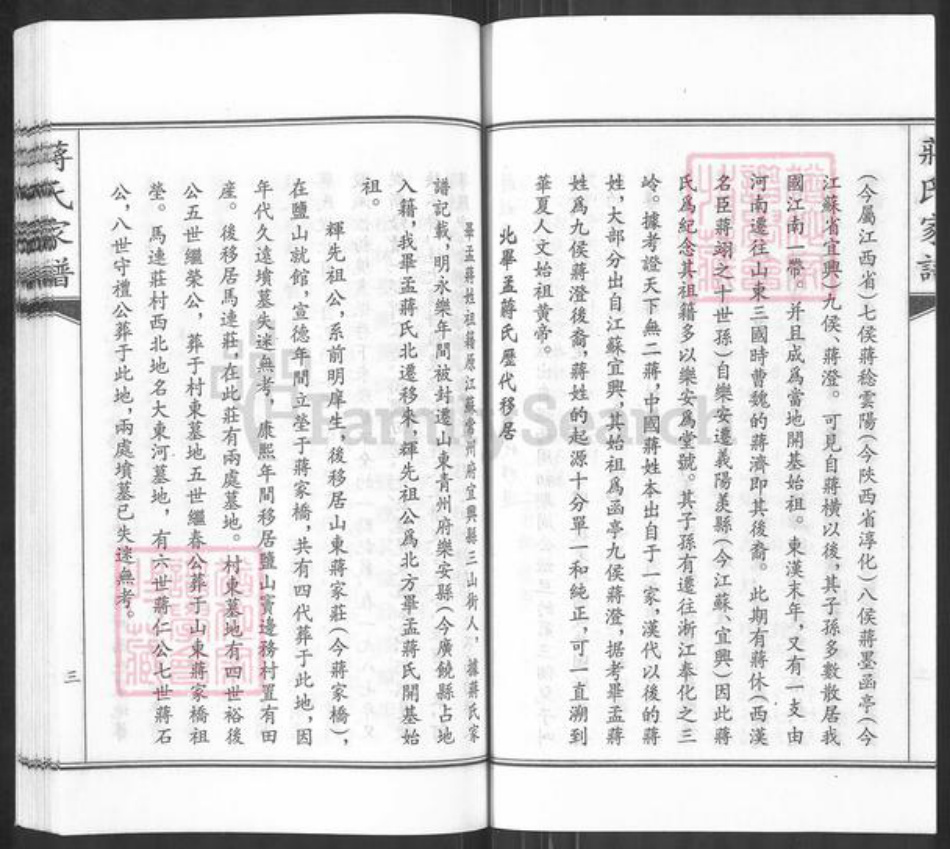 蔣氏家譜
(今屬江西省)七侯蔣稔雲陽(今陝西省淳化)八侯蔣墨函亭(今
江蘇省宜興)九侯、蔣澄。可見自蔣橫以後,其子孫多數散居我
國江南一帶。并且成爲當地開基始祖。東漢末年,又有一支由
河南遷往山東三國時曹魏的蔣濟即其後裔。此期有蔣休(西漢
名臣蔣翊之十世孫)自樂安遷義陽羨縣(今江蘇、宜興)因此蔣
氏爲紀念其祖籍多以樂安爲堂號。其子孫有遷往浙江奉化之三
岭。據考證天下無二蔣,中國蔣姓本出自于一家,漢代以後的蔣
姓,大部分出自江蘇宜興,其始祖爲函亭九侯蔣澄,據考畢孟蔣
姓爲九侯蔣澄後裔,蔣姓的起源十分單一和純正,可一直溯到
華夏人文始祖黃帝。
北畢孟蔣氏歷代移居
畢孟蔣姓祖籍原江蘇常州府宜興縣三山街人,據蔣氏家
譜記載,明永樂年間被封遷山東青州府樂安縣(今廣饒縣占地
入籍,我畢孟蔣氏北遷移來,輝先祖公爲北方畢孟蔣氏開基始
祖。
輝先祖公,系前明庠生,後移居山東蔣家莊(今蔣家橋),
在鹽山就館,宣德年間立塋于蔣家橋,共有四代葬于此地,因
年代久遠墳墓失迷無考,康熙年間移居鹽山竇邊務村置有田
産。後移居馬連莊,在此莊有兩處墓地。村東墓地有四世裕後
公五世繼榮公,葬于村東墓地五世繼春公葬于山東蔣家橋祖
塋。馬連莊村西北地名大東河墓地,有六世蔣仁公七世蔣石
公,八世守禮公葬于此地,兩處墳墓已失迷無考。
蔣氏家譜
三
FamilySearch